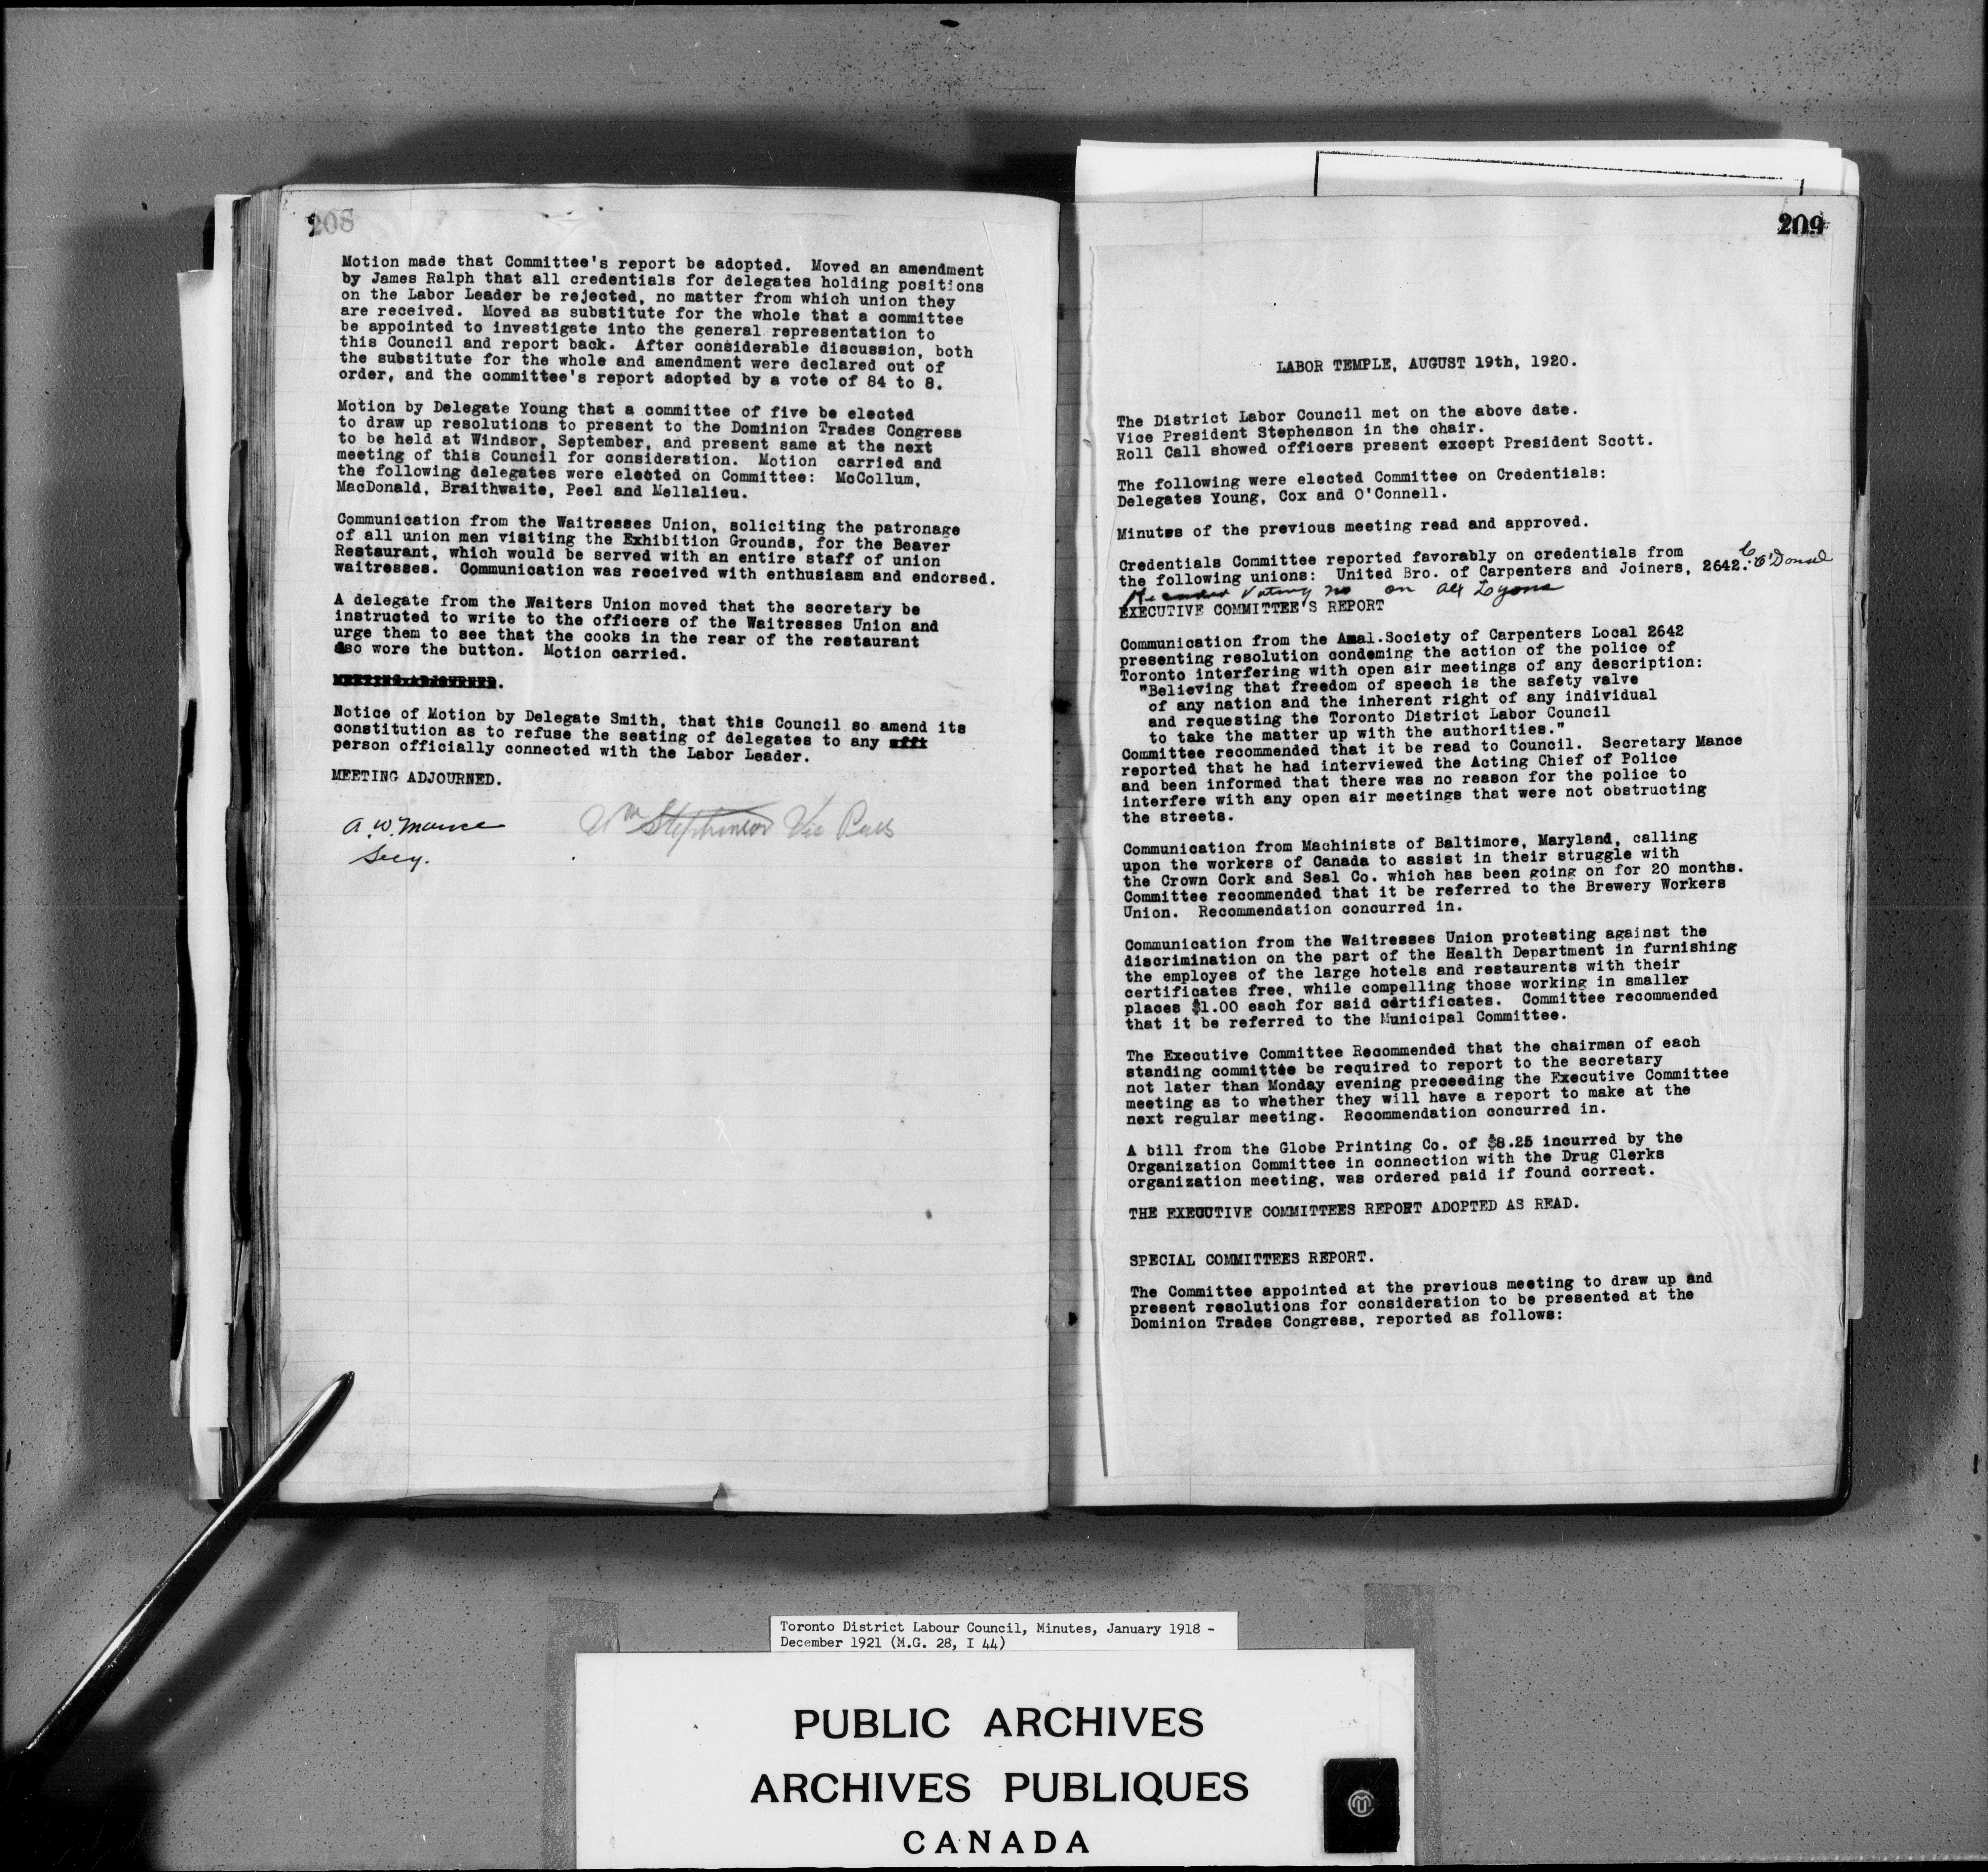 208
Motion made that Committee's report be adopted. Moved an amendment
by James Ralph that all credentials for delegates holding positions
on the Labor Leader be rejected, no matter from which union they
are received. Moved as substitute for the whole that a committee
be appointed to investigate into the general representation to
this Council and report back. After considerable discussion, both
the substitute for the whole and amendment were declared out of
order, and the committee's report adopted by a vote of 84 to 8.
Motion by Delegate Young that a committee of five be elected
to draw up resolutions to present to the Dominion Trades Congress
to be held at Windsor, September, and present same at the next
meeting of this Council for consideration. Motion carried and
the following delegates were elected on Committee: McCollum,
MacDonald, Braithwaite, Peel and Mellalieu.
Communication from the Waitresses Union, soliciting the patronage
of all union men visiting the Exhibition Grounds, for the Beaver
Restaurant, which would be served with an entire staff of union
waitresses. Communication was received with enthusiasm and endorsed.
A delegate from the Waiters Union moved that the secretary be
instructed to write to the officers of the Waitresses Union and
urge them to see that the cooks in the rear of the restaurant
also wore the button. Motion carried.
MEETING ADJOURNED.
Notice of Motion by Delegate Smith, that this Council so amend its
constitution as to refuse the seating of delegates to any
person officially connected with the Labor Leader.
MEETING ADJOURNED.
A. W. Mance Wm Stephenson Vic Pres
Secy.
209
LABOR TEMPLE, AUGUST 19th, 1920.
The District Labor Council met on the above date.
Vice President Stephenson in the chair.
Roll Call showed officers present except President Scott.
The following were elected Committee on Credentials:
Delegates Young, Cox and O'Connell.
Minutes of the previous meeting read and approved.
Credentials Committee reported favorably on credentials from
the following unions: United Bro. of Carpenters and Joiners, 2642.
Recorded Voting no on Alf Lyons
EXECUTIVE COMMITTEE'S REPORT
Communication from the Amal.Society of Carpenters Local 2642
presenting resolution condeming the action of the police of
Toronto interfering with open air meetings of any description:
"Believing that freedom of speech is the safety valve
of any nation and the inherent right of any individual
and requesting the Toronto District Labor Council
to take the matter up with the authorities."
Committee recommended that it be read to Council. Secretary Mance
reported that he had interviewed the Acting Chief of Police
and been informed that there was no reason for the police to
interfere with any open air meetings that were not obstructing
the streets.
Communication from Machinists of Baltimore, Maryland, calling
upon the workers of Canada to assist in their struggle with
the Crown Cork and Seal Co. which has been going on for 20 months.
Committee recommended that it be referred to the Brewery Workers
Union. Recommendation concurred in.
Communication from the Waitresses Union protesting against the
discrimination on the part of the Health Department in furnishing
the employes of the large hotels and restaurants with their
certificates free, while compelling those working in smaller
places $1.00 each for said certificates. Committee recommended
that it be referred to the Municipal Committee.
The Executive Committee Recommended that the chairman of each
standing committee be required to report to the secretary
not later than Monday evening preceeding the Executive Committee
meeting as to whether they will have a report to make at the
next regular meeting. Recommendation concurred in.
A bill from the Globe Printing Co. of $8.25 incurred by the
Organization Committee in connection with the Drug Clerks
organization meeting, was ordered paid if found correct.
THE EXECUTIVE COMMITTEES REPORT ADOPTED AS READ.
SPECIAL COMMITTEES REPORT.
The Committee appointed at the previous meeting to draw up and
present resolutions for consideration to be presented at the
Dominion Trades Congress, reported as follows:
Toronto District Labour Council, Minutes, January 1918 -
December 1921 (M.G. 28, I 44)
PUBLIC ARCHIVES
ARCHIVES PUBLIQUES
CANADA